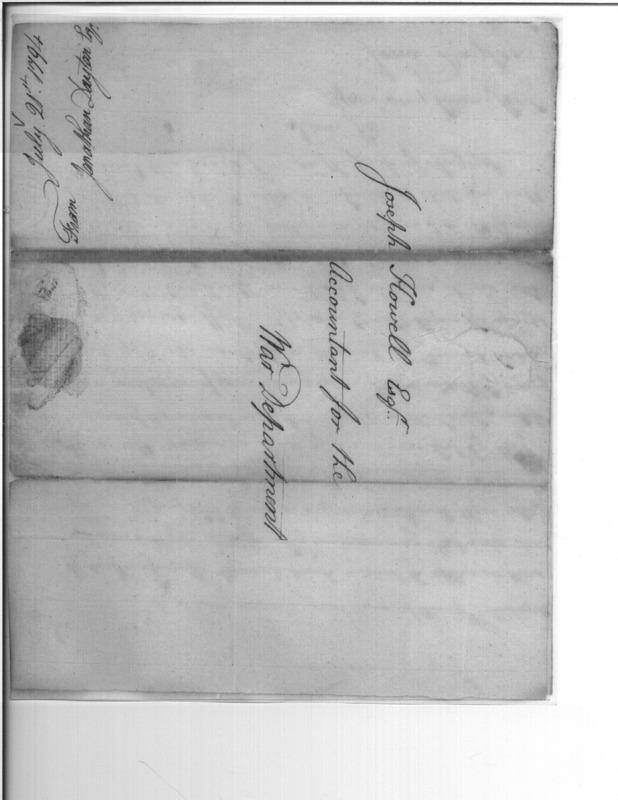 July 21st. 1794
From Jonathan Dayton Esq.
Joseph Howell Esqr.
Accountant for the
War Department